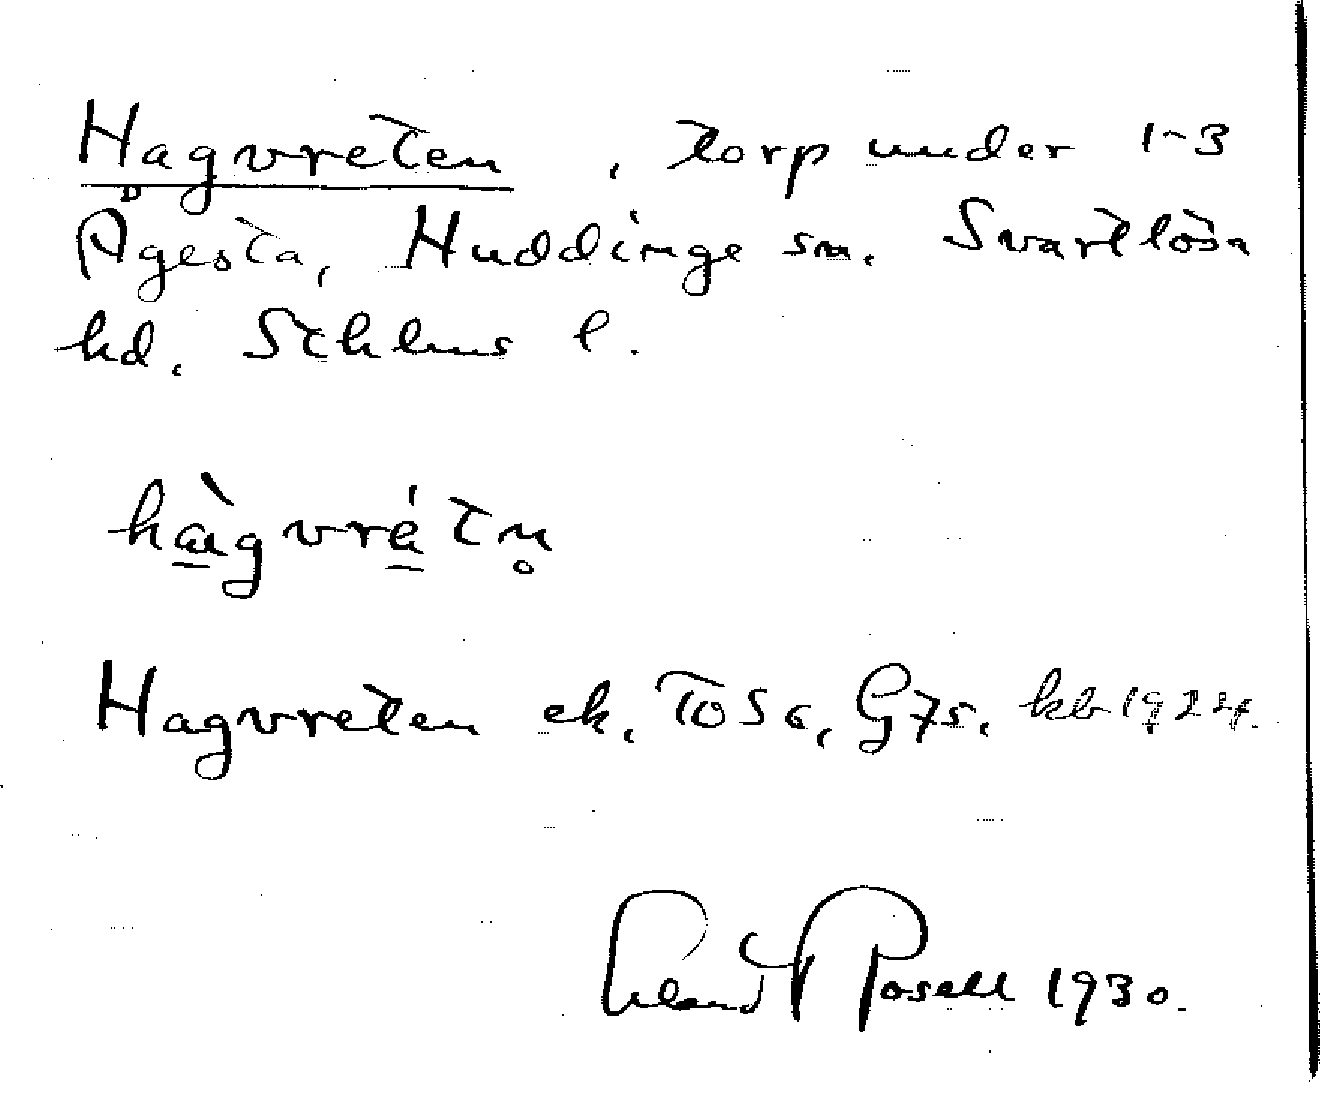 Hagvreten, torp under 1-3
Ågesta, Huddinge sn. Svartlösa
hd. Sthlms l.
hàgvrétn̥
Hagvreten ek. To 56, G75. kb 1924.
Erland Rosell 1930.